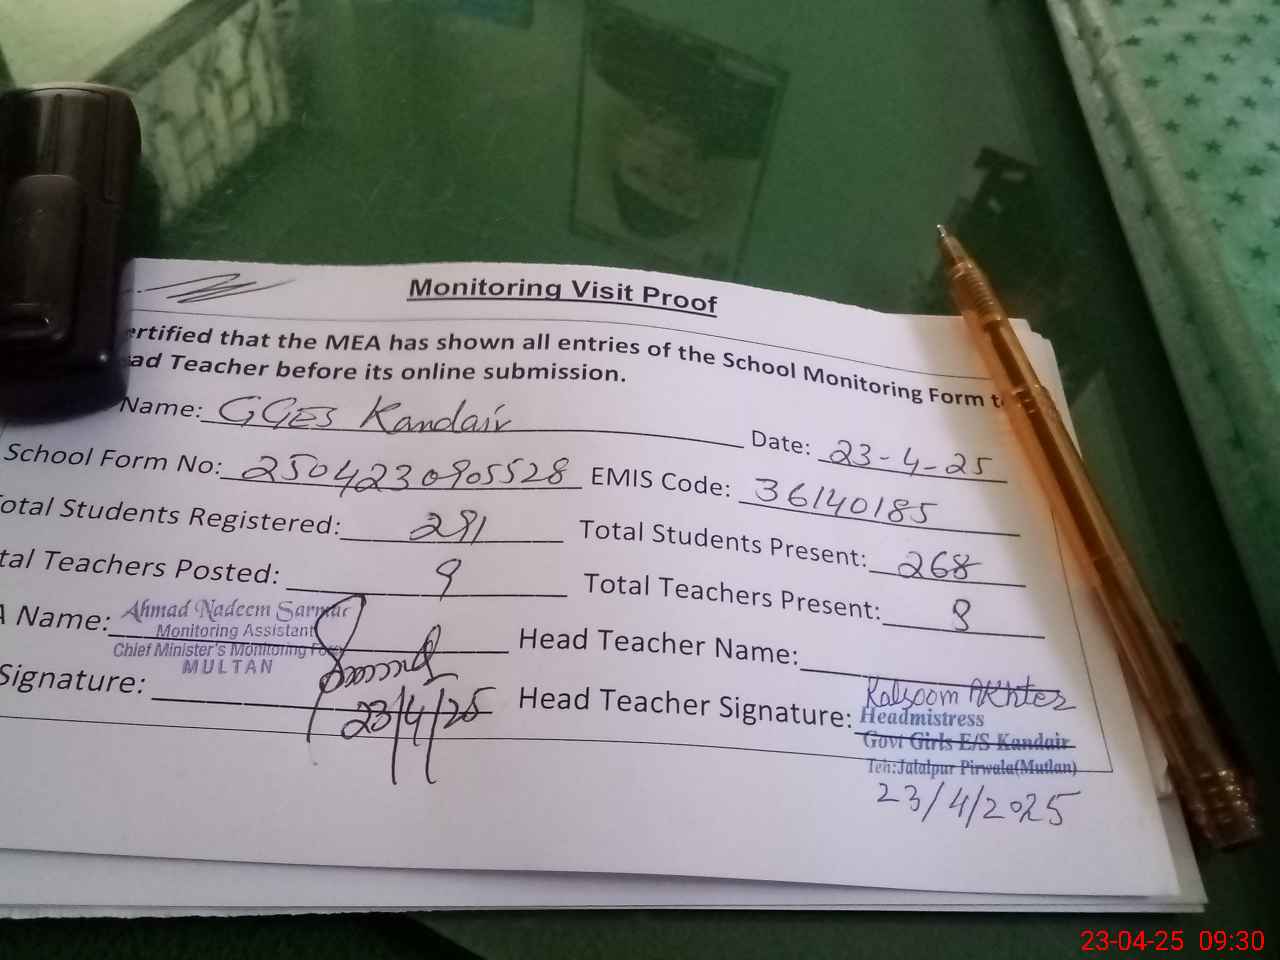 Monitoring Visit Proof
ertified that the MEA has shown all entries of the School Monitoring Form t
ad Teacher before its online submission.
Name: GGES Kandair Date: 23-4-25
School Form No: 2504230905528 EMIS Code: 36140185
otal Students Registered: 291 Total Students Present: 268
tal Teachers Posted: 9 Total Teachers Present: 8
A Name: Ahmad Nadeem Sarwar Head Teacher Name:
Monitoring Assistant
Chief Minister's Monitoring Fo
MULTAN
Signature: 23/4/25 Head Teacher Signature: Kalsoom Akhter
Headmistress
Govt Girls E/S Kandair
Teh:Jalalpur Pirwala(Mutlan)
23/4/2025
23-04-25 09:30